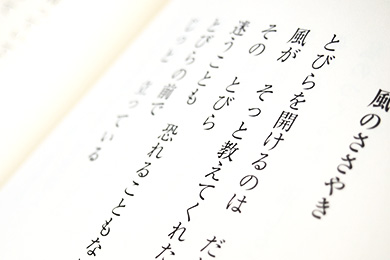 風のささやき
とびらを開けるのは だ
風が そっと教えてくれた
その とびら
迷うことも 恐れることもな
とびらの前で
立っている